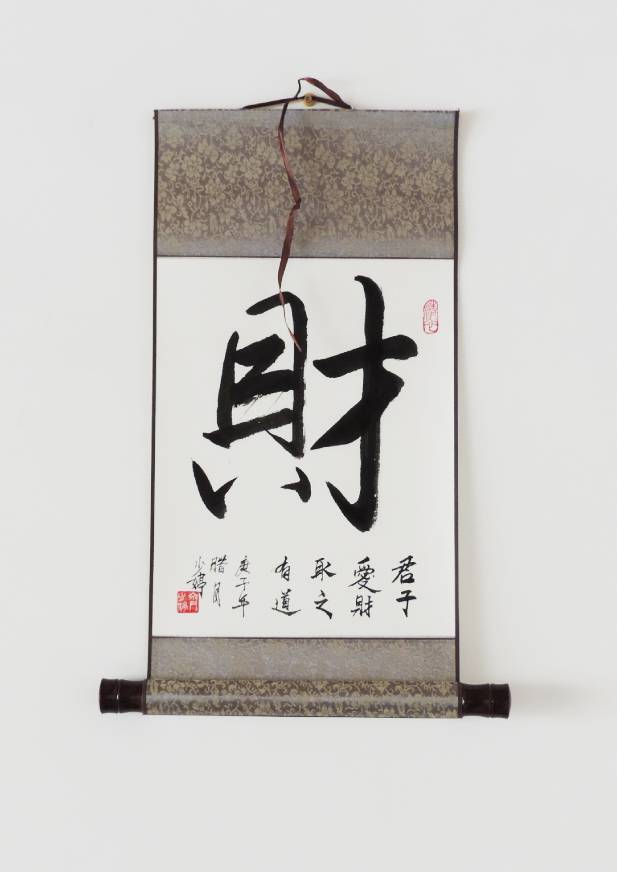 財
君子
愛財
取之
有道
庚子年
腊月
小婷